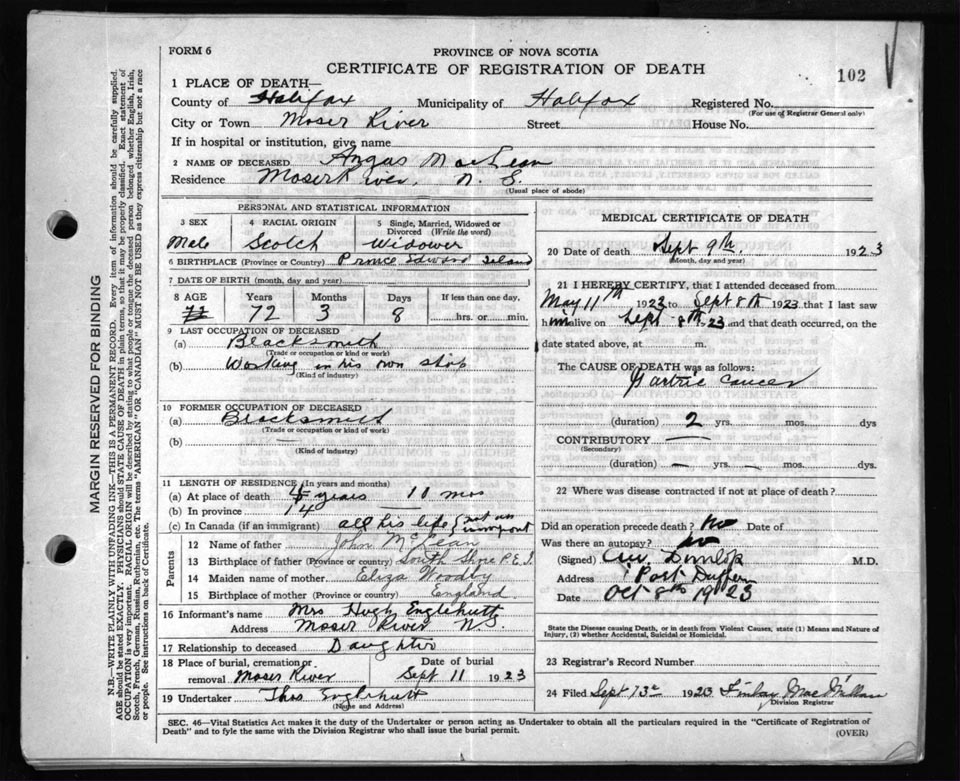 FORM 6
PROVINCE OF NOVA SCOTIA
CERTIFICATE OF REGISTRATION OF DEATH
102
1 PLACE OF DEATH—
County of Halifax Municipality of Halifax Registered No.
(For use of Registrar General only)
City or Town Moser River Street House No.
If in hospital or institution, give name
2 NAME OF DECEASED Angus MacLean
Residence Moser River, N. S.
(Usual place of abode)
PERSONAL AND STATISTICAL INFORMATION
3 SEX 4 RACIAL ORIGIN 5 Single, Married, Widowed or Divorced (Write the word)
Male Scotch Widower
6 BIRTHPLACE (Province or Country) Prince Edward Island
7 DATE OF BIRTH (month, day and year)
8 AGE Years Months Days If less than one day,
72 3 8 hrs. or min.
9 LAST OCCUPATION OF DECEASED
(a) Blacksmith
(Trade or occupation or kind of work)
(b) Working in his own shop
(Kind of industry)
10 FORMER OCCUPATION OF DECEASED
(a) Blacksmith
(Trade or occupation or kind of work)
(b) —
(Kind of industry)
11 LENGTH OF RESIDENCE (In years and months)
(a) At place of death 4 years 10 mos
(b) In province 14
(c) In Canada (if an immigrant) all his life { not an immigrant
Parents
12 Name of father John McLean
13 Birthplace of father (Province or country) South Shore P.E.I.
14 Maiden name of mother Eliza
15 Birthplace of mother (Province or country) England
16 Informant's name Mrs Hugh Englehutt
Address Moser River N.S.
17 Relationship to deceased Daughter
18 Place of burial, cremation or removal Moser River Date of burial Sept 11 1923
19 Undertaker Thos. Englehutt
(Name and Address)
MEDICAL CERTIFICATE OF DEATH
20 Date of death Sept 9th. 1923
(Month, day and year)
21 I HEREBY CERTIFY, that I attended deceased from
May 11th 1923 to Sept 8th 1923 that I last saw
him alive on Sept 8th 23 and that death occurred, on the
date stated above, at m.
The CAUSE OF DEATH was as follows:
Gastric cancer
(duration) 2 yrs. mos. dys
CONTRIBUTORY —
(Secondary)
(duration) — yrs. — mos. dys.
22 Where was disease contracted if not at place of death?
Did an operation precede death? no Date of
Was there an autopsy? no
(Signed) Dunlop M.D.
Address Port Dufferin
Date Oct 8th 1923
State the Disease causing Death, or in death from Violent Causes, state (1) Means and Nature of
Injury, (2) whether Accidental, Suicidal or Homicidal.
23 Registrar's Record Number
24 Filed Sept 13th 1923 Finlay MacMillan
Division Registrar
SEC. 46—Vital Statistics Act makes it the duty of the Undertaker or person acting as Undertaker to obtain all the particulars required in the "Certificate of Registration of
Death" and to fyle the same with the Division Registrar who shall issue the burial permit.
(OVER)
MARGIN RESERVED FOR BINDING
N.B—WRITE PLAINLY WITH UNFADING INK—THIS IS A PERMANENT RECORD. Every item of information should be carefully supplied.
AGE should be stated EXACTLY. PHYSICIANS should STATE CAUSE OF DEATH in plain terms, so that it may be properly classified. Exact statement of
OCCUPATION is very important. RACIAL ORIGIN will be described by stating to what people or tongue the deceased person belonged whether English, Irish,
Scotch, French, German, Russian, Ruthenian, etc. The terms "AMERICAN" OR "CANADIAN" MUST NOT BE USED as they express citizenship but not a race
or people. See instructions on back of Certificate.